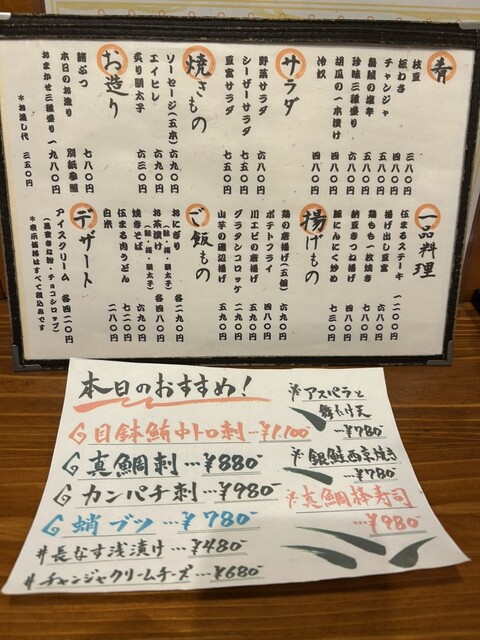 肴
枝豆 三八〇円
板わさ 四八〇円
チャンジャ 五八〇円
珍味三種盛り 六八〇円
胡瓜の一本漬け 四八〇円
冷奴 四八〇円
サラダ
野菜サラダ 六八〇円
シーザーサラダ 七五〇円
豆富サラダ 七五〇円
焼きもの
ソーセージ(五本) 六九〇円
エイヒレ 六九〇円
炙り明太子 六三〇円
お造り
鮪ぶつ 七八〇円
本日のお造り 別紙参照
おまかせ三種盛り 一九八〇円
*お通し代 三五〇円
一品料理
伍まるステーキ 一二〇〇円
揚げ出し豆富 六八〇円
鶏もも一枚焼き 七八〇円
納豆きつね揚げ 四八〇円
豚にんにく炒め 七三〇円
揚げもの
鶏の唐揚げ(五個) 六九〇円
ポテトフライ 四八〇円
川エビの唐揚げ 五八〇円
グラタンコロッケ 二四〇円
山芋の磯辺揚げ 五九〇円
ご飯もの
おにぎり 各二九〇円
(鮭・梅・明太子)
お茶漬け 各四八〇円
(鮭・梅・明太子)
焼きそば 六九〇円
伍まる肉うどん 七二〇円
白米 二八〇円
デザート
アイスクリーム 各四二〇円
(黒蜜きな粉・チョコシロップ)
*表示価格はすべて税込みです
本日のおすすめ!
目鉢鮪中トロ刺…¥1,100-
真鯛刺…¥880-
カンパチ刺…¥980-
蛸ブツ…¥780-
#長なす浅漬け…¥480-
#チャンジャクリームチーズ…¥680-
※アスパラと
舞たけ天
…¥780-
※銀鮭西京焼き
…¥780-
※真鯛棒寿司
…¥980-